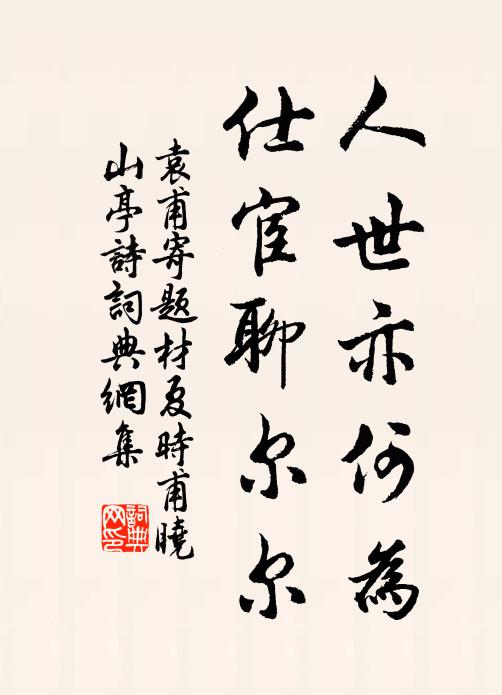 人世亦何為
仕宦聊尔尔
袁甫寄题材夏時甫曉
山亭詩詞典網集
詞典
网印